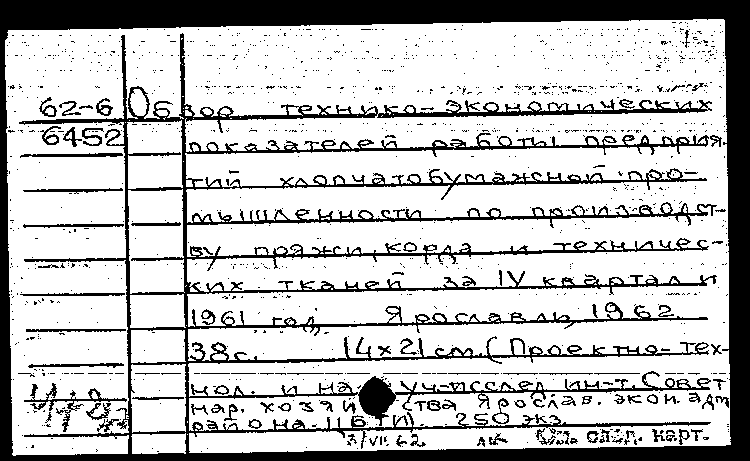 62-6 Обзор технико-экономических
6452 показателей работы предприя-
тий хлопчатобумажной про-
мышленности по производст-
ву пряжи, корда и техничес-
ких тканей за IV квартал и
1961 год. Ярославль, 1962.
38с. 14х21 см. (Проектно-тех-
нол. и науч-исслед. ин-т. Совет
нар. хозяйства Ярослав. экон. адм
района. ЦБТИ). 250 экз.
3/VII 62. след. карт.